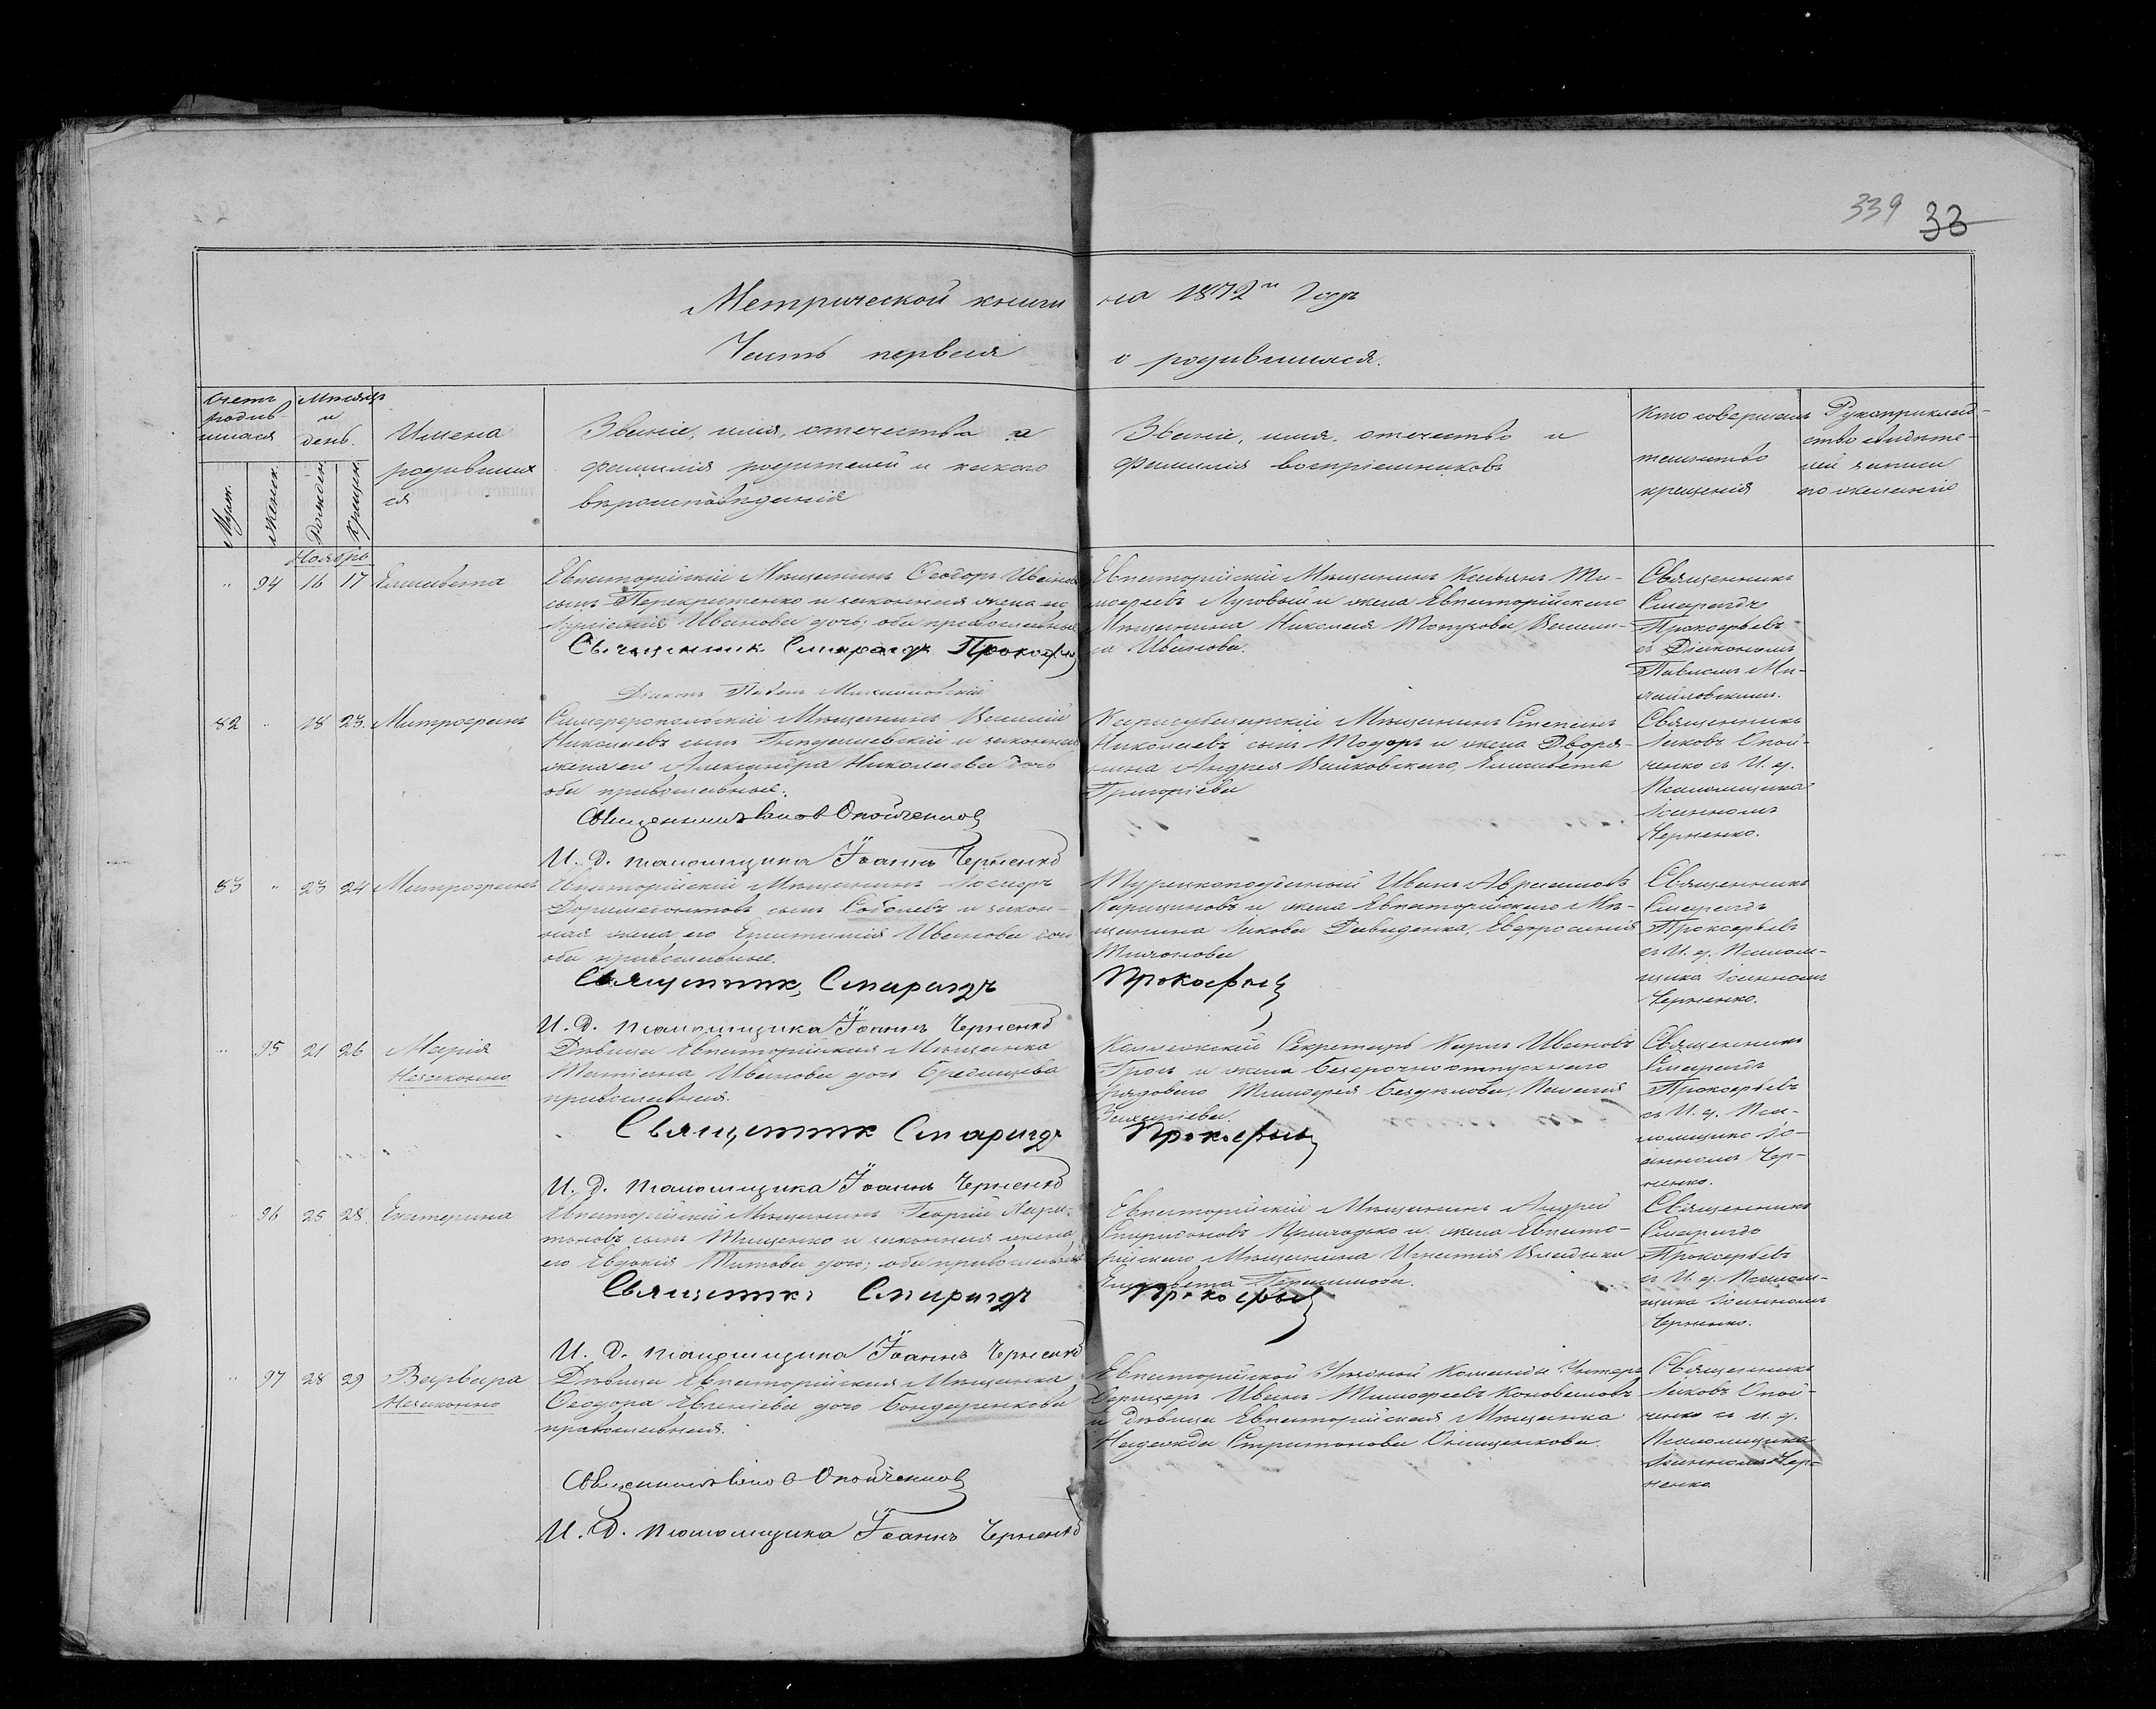 339 33
Метрической книги на 1872й Годъ
Часть первая о родившихся.
Счетъ родив-
шихся
Муж.
Женск.
Мѣсяцъ
и
день.
Рожден.
Крещен.
Имена
родивших
ся
Званіе, имя, отечество и
фамилія родителей и какого
вѣроисповѣданія
Званіе, имя, отечество и
фамилія воспріемниковъ
Кто совершалъ
таинство
крещенія
Рукоприклад-
ство свидѣте-
лей записи
по желанію
Ноябрь
" 94 16 17 Елисавета
Евпаторійскій Мѣщанинъ Ѳеодоръ Ивановъ
сынъ Перекрестенко и законная жена его
Ивановна дочь; оба православные
Священник Смарагдъ Прокофьев
Діаконъ Павелъ Михайловскій
Евпаторійскій Мѣщанинъ Ти-
мофеевъ Луговый и жена Евпаторійскаго
Мѣщанина Николая Васили-
са Иванова.
Священникъ
Смарагдъ
Прокофьевъ
съ Діакономъ
Павломъ Ми-
хайловскимъ.
82 " 18 23 Митрофанъ
Симферопольскій Мѣщанинъ Василій
Николаевъ сынъ и законная
жена его Александра Николаева дочь
оба православные.
Священникъ Іаковъ Опойченков
И. Д. псаломщика Іоаннъ Черненко
Карасубазарскій Мѣщанинъ Степанъ
Николаевъ сынъ Тодоръ и жена Дворя-
нина Андрея Елисавета
Григоріева
Священникъ
Іаковъ Опой-
ченко съ И. д.
Псаломщика
Іоанномъ
Черненко.
83 " 23 24 Митрофанъ
Евпаторійскій Мѣщанинъ
сынъ Соболевъ и закон-
ная жена его Иванова дочь
оба православные.
Священник Смарагдъ Прокофьев
И. Д. псаломщика Іоаннъ Черненко
Турецкоподданный Иванъ Аврамовъ
и жена Евпаторійскаго Мѣ-
щанина Якова Давиденка, Евфросинія
Священникъ
Смарагдъ
Прокофьевъ
съ И. д. Псалом-
щика Іоанномъ
Черненко.
" 95 21 26 Марія
Незаконно
Дѣвица Евпаторійская Мѣщанка
Татіана Иванова дочь
православная.
Священник Смарагдъ Прокофьев
И. Д. псаломщика Іоаннъ Черненко
Коллежскій Секретарь Карлъ Ивановъ
и жена безсрочноотпускнаго
рядоваго Тимофея Пелагія
Захаріева
Священникъ
Смарагдъ
Прокофьевъ
съ И. д. Пса-
ломщика Іо-
анномъ Чер-
ненко.
" 96 25 28 Екатерина
Евпаторійскій Мѣщанинъ Георгій Хари-
тоновъ сынъ Тищенко и законная жена
его Евдокія Титова дочь; оба православные
Священникъ Смарагдъ Прокофьев
И. Д. псаломщика Іоаннъ Черненко
Евпаторійскій Мѣщанинъ Андрей
Спиридоновъ Приходько и жена Евпато-
рійскаго Мѣщанина Игнатія
Елисавета Герасимова.
Священникъ
Смарагдъ
Прокофьевъ
съ И. д. Псалом-
щика Іоанномъ
Черненко.
" 97 28 29 Варвара
Незаконно
Дѣвица Евпаторійская Мѣщанка
Ѳеодора Евгеніева дочь Бондаренкова
православная.
Священникъ Іаковъ Опойченков
И. Д. псаломщика Іоаннъ Черненко
Евпаторійской Уѣздной Команды Унтеръ
Офицеръ Иванъ Тимофеевъ Коноваловъ
и дѣвица Евпаторійская Мѣщанка
Надежда Онищенкова.
Священникъ
Іаковъ Опой-
ченко съ и. д.
Псаломщика
Іоанномъ Чер-
ненко.